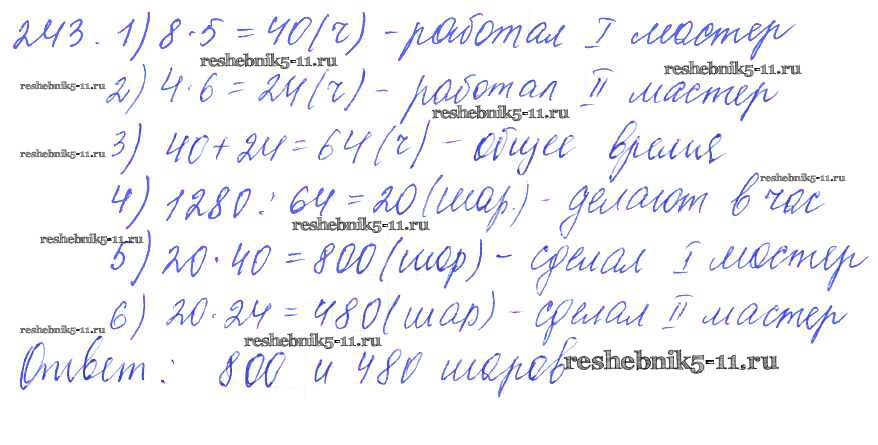 243. 1) 8·5=40(ч) - работал I мастер
reshebnik5-11.ru reshebnik5-11.ru
reshebnik5-11.ru 2) 4·6=24(ч) - работал II мастер
reshebnik5-11.ru
reshebnik5-11.ru 3) 40+24=64(ч) - общее время
reshebnik5-11.ru
4) 1280:64=20(шар.) - делают в час
reshebnik5-11.ru
reshebnik5-11.ru
5) 20·40=800(шар) - сделал I мастер
reshebnik5-11.ru 6) 20·24=480(шар) - сделал II мастер
reshebnik5-11.ru
Ответ: 800 и 480 шаров
reshebnik5-11.ru